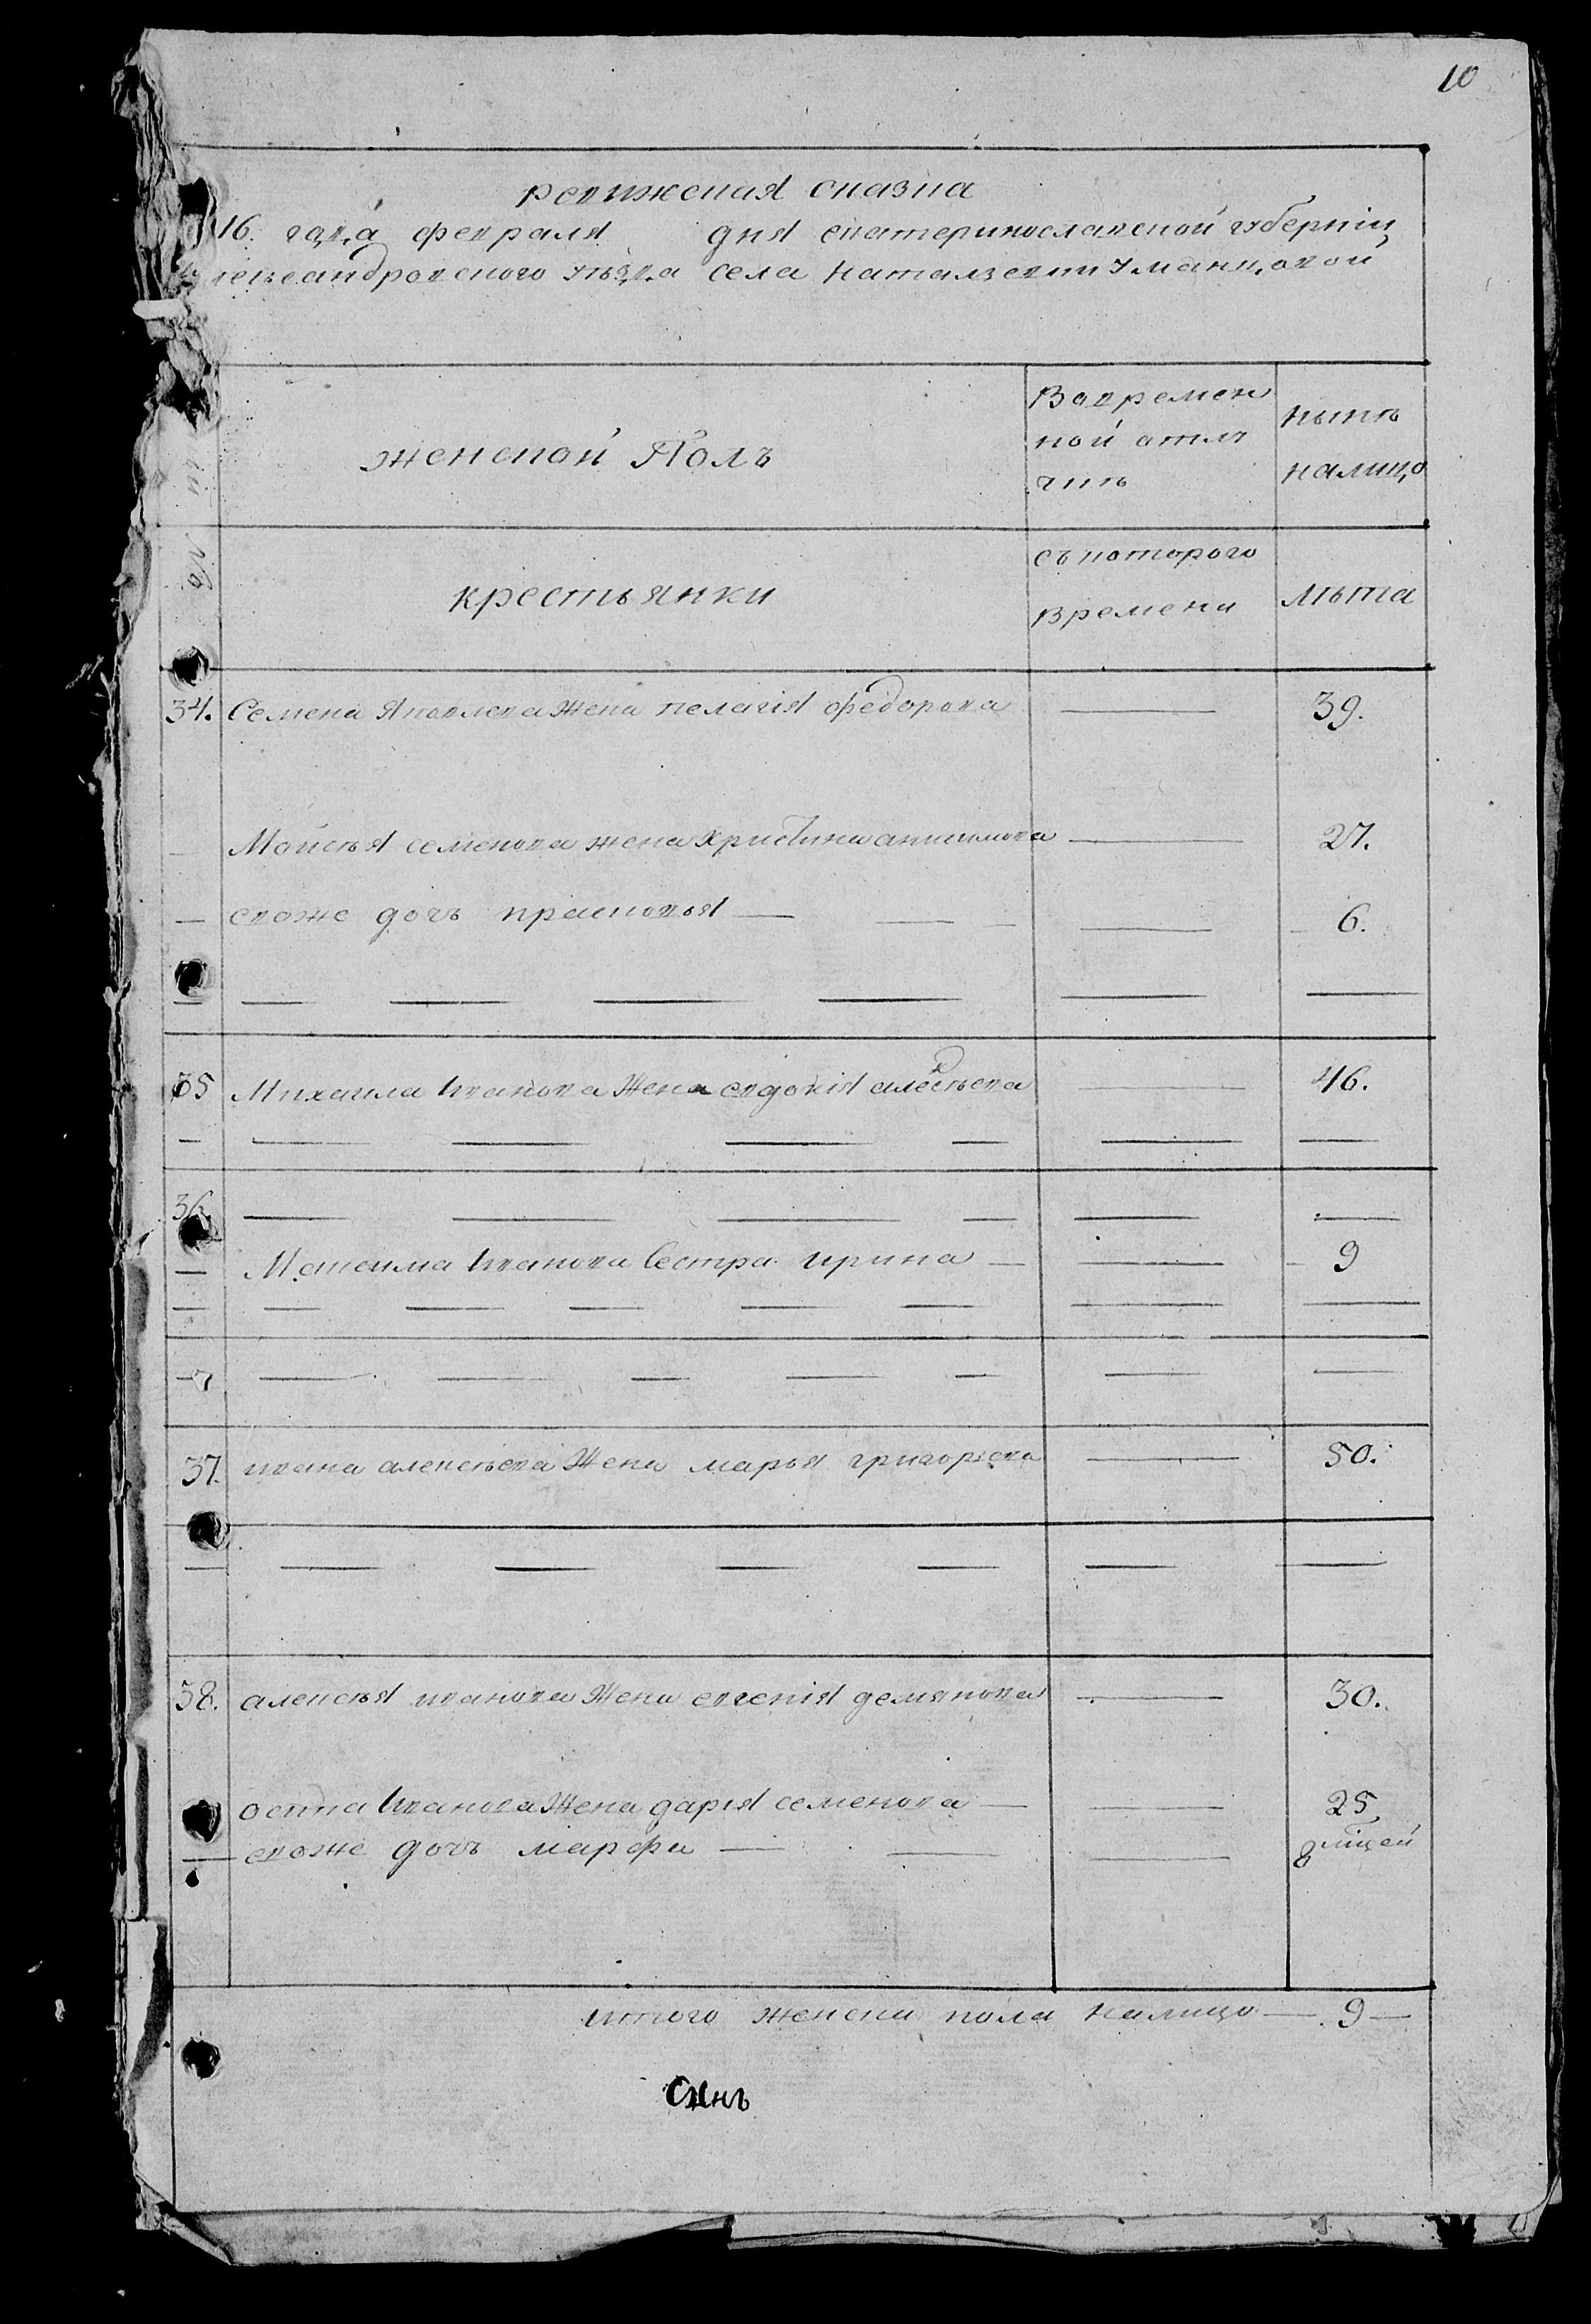 10
ревижская сказка
16. года февраля дня екатеринославской губерніи
лександровского уѣзда села натальевки уманцовой
женской Полъ
Вовремен
ной отлу
чкѣ
нынѣ
налицо
№
крестьянки
съ которого
времени
лѣта
34. Семена Яковлева Жена пелагія федорова — 39.
— Мойсѣя семенова жена Христина анисимова — 27.
— евоже дочь прасковья — — — 6.
— — — — — — —
35 Михаила Иванова Жена евдокія алексѣева — 46.
— — — — — — —
36. — — — — — —
— Максима Иванова Сестра ирина — — 9
— — — — — — — —
— — — — — — — —
37. ивана алексѣева Жена марья григорьева — 50.
— — — — — — —
38. алексѣя иванова Жена евгенія демянова — 30.
осипа Иванова Жена дарія семенова — — 25
— евоже дочь марфа — — — 8 мѣсецей
итого женска пола налицо — 9 —
Сынъ